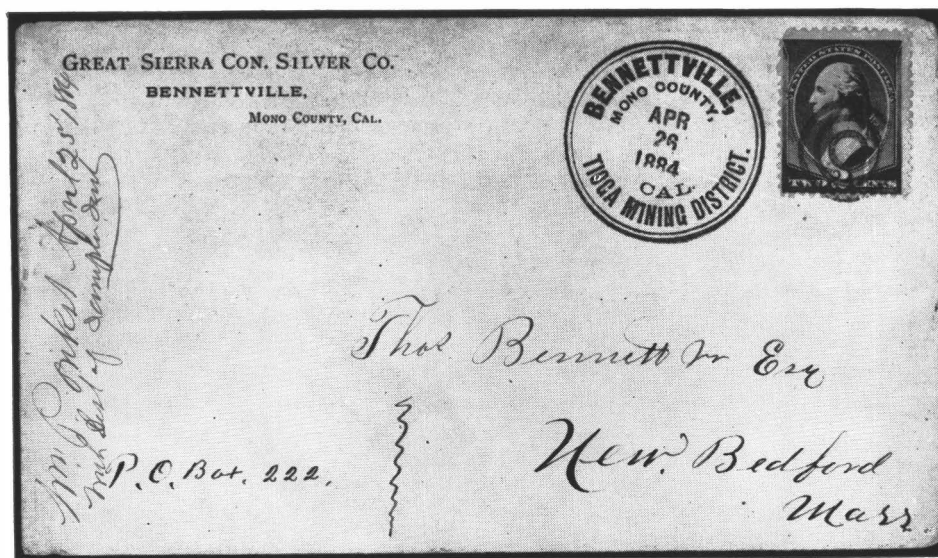 GREAT SIERRA CON. SILVER CO.
BENNETTVILLE,
MONO COUNTY, CAL.
BENNETTVILLE,
MONO COUNTY,
APR
26
1884
CAL.
TIOGA MINING DISTRICT.
UNITED STATES POSTAGE
TWO CENTS
April 25 1884
Thos Bennett Jr Esq
New. Bedford
Mass
P.O. Box. 222.